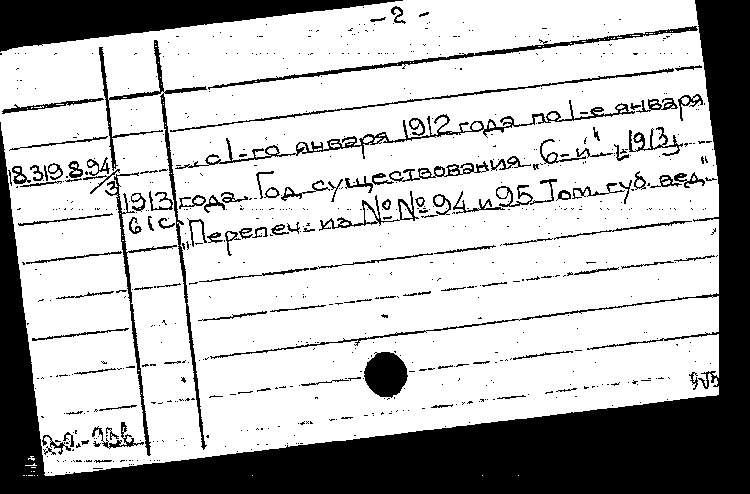 - 2 -
с 1-го января 1912 года по 1-е января
18.319.8.94/3
1913 года. Год существования „6-й“ [1913]
6 (с)
„Перепеч. из №№ 94 и 95 Том. губ. вед.“